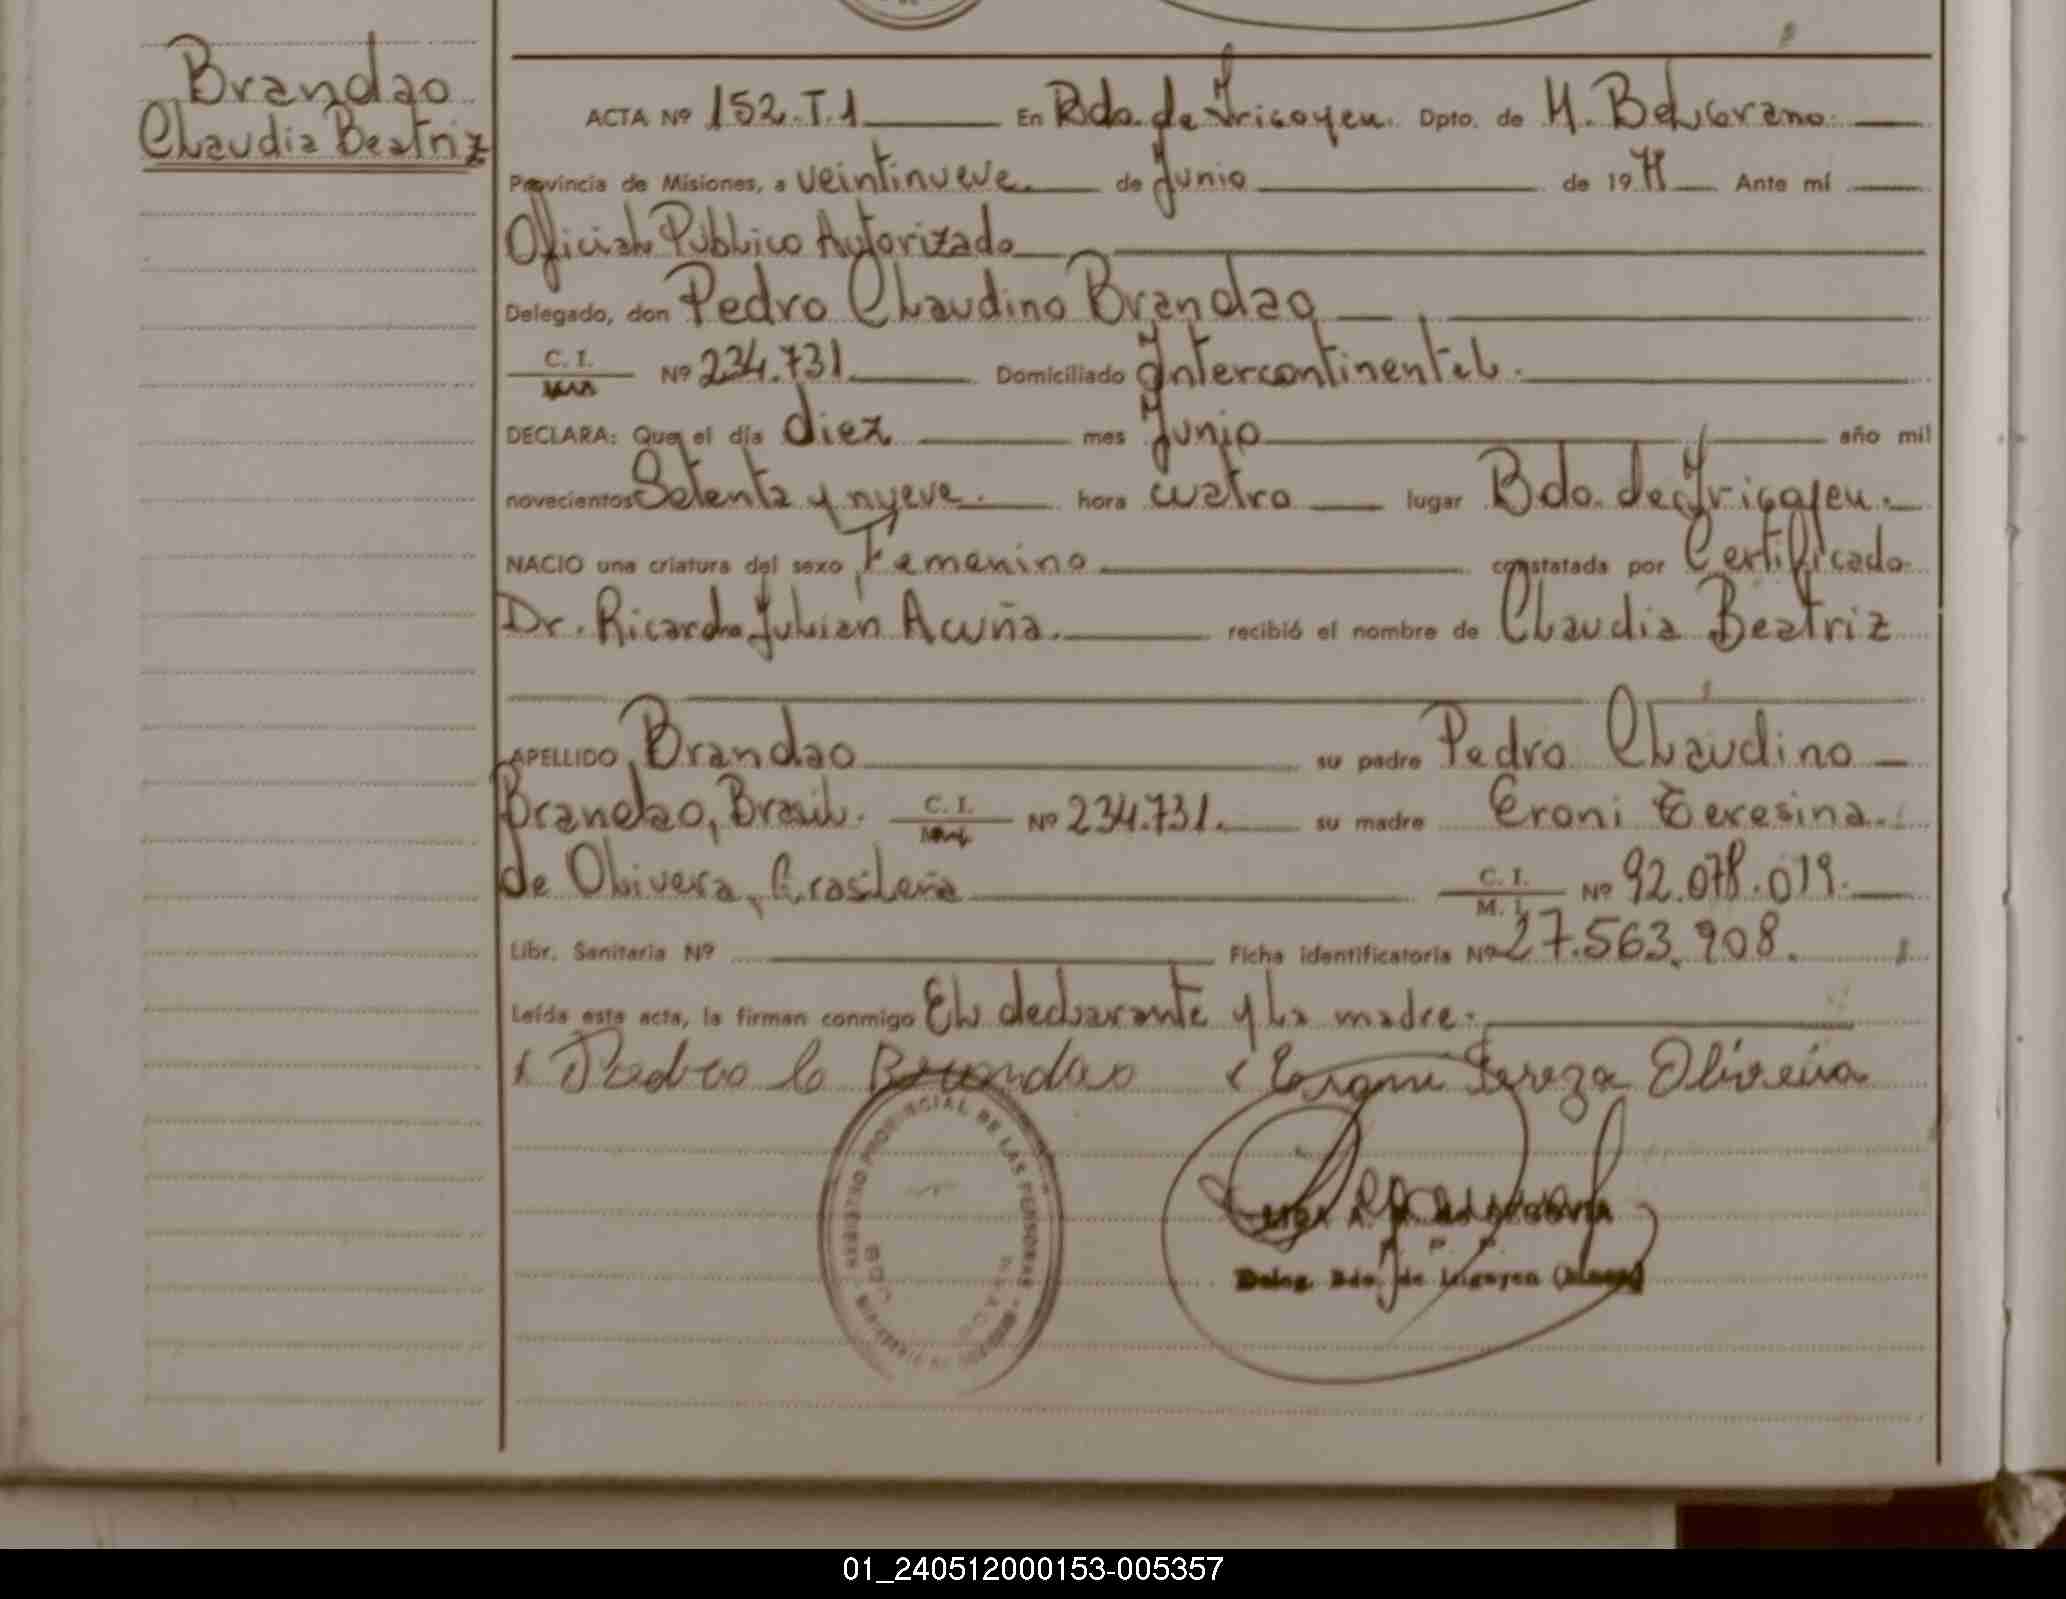 Brandao
Claudia Beatriz
ACTA Nº 152.T.1 En Bdo. de Irigoyen. Dpto. de M. Belgrano.
Provincia de Misiones, a veintinueve de Junio de 19 Ante mí
Oficial Público Autorizado
Delegado, don Pedro Claudino Brandao
C. I. Nº 234.731. Domiciliado Intercontinental.
DECLARA: Que el día diez mes Junio año mil
novecientos Setenta y nueve. hora cuatro lugar Bdo. de Irigoyen.
NACIO una criatura del sexo Femenino constatada por Certificado
Dr. Ricardo Julian Acuña. recibió el nombre de Claudia Beatriz
APELLIDO Brandao su padre Pedro Claudino
Brandao, Brasil. C. I. Nº 234.731. su madre Eroni Teresina
de Olivera, brasileña C. I. M. I. Nº 92.078.019.
Libr. Sanitaria Nº Ficha identificatoria Nº 27.563.908.
Leída esta acta, la firman conmigo El declarante y la madre.
Pedro C Brandao Tereza Oliveira
REGISTRO PROVINCIAL DE LAS PERSONAS
Deleg. Bdo. de Irigoyen (Mnes)
01_240512000153-005357